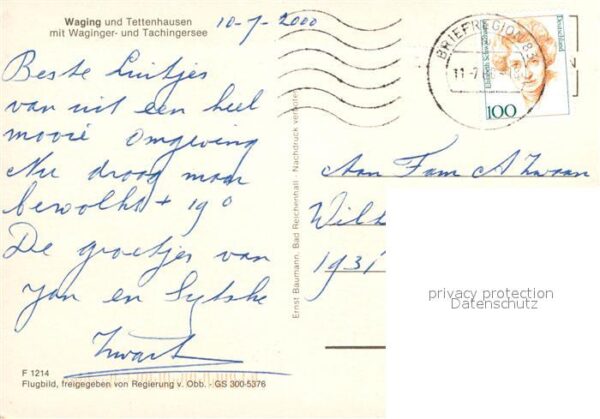 Waging und Tettenhausen
mit Waginger- und Tachingersee
10-7-2000
Beste Luitjes
van uit een heel
mooie omgeving
Nu droog maar
bewolkt + 19°
De groetjes van
Jan en Sytske
Zwart
F 1214
Flugbild, freigegeben von Regierung v. Obb. - GS 300-5376
Ernst Baumann, Bad Reichenhall · Nachdruck verboten
BRIEFREGION 83
11-7
Deutschland
Elisabeth Schwarzhaupt
100
Aan Fam A Zwaan
Wilh
1931
privacy protection
Datenschutz